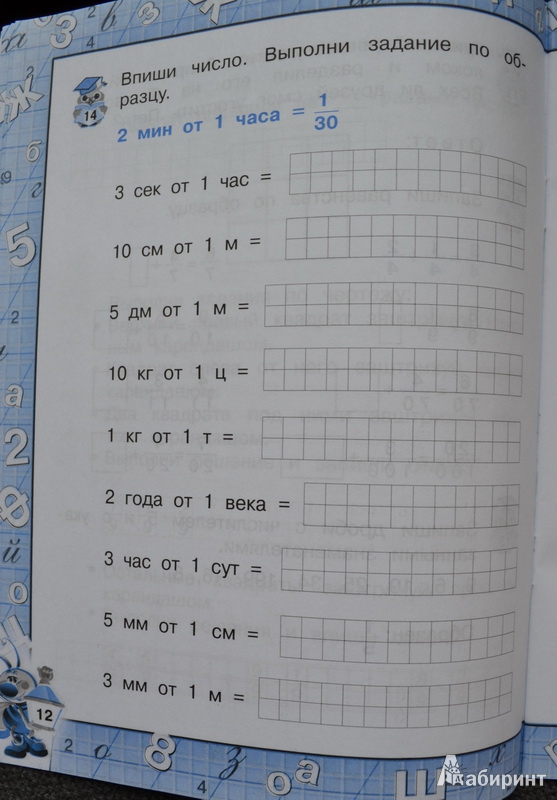 Впиши число. Выполни задание по об-
разцу.
14
2 мин от 1 часа = 1/30
3 сек от 1 час =
10 см от 1 м =
5 дм от 1 м =
10 кг от 1 ц =
1 кг от 1 т =
2 года от 1 века =
3 час от 1 сут =
5 мм от 1 см =
3 мм от 1 м =
12
Лабиринт